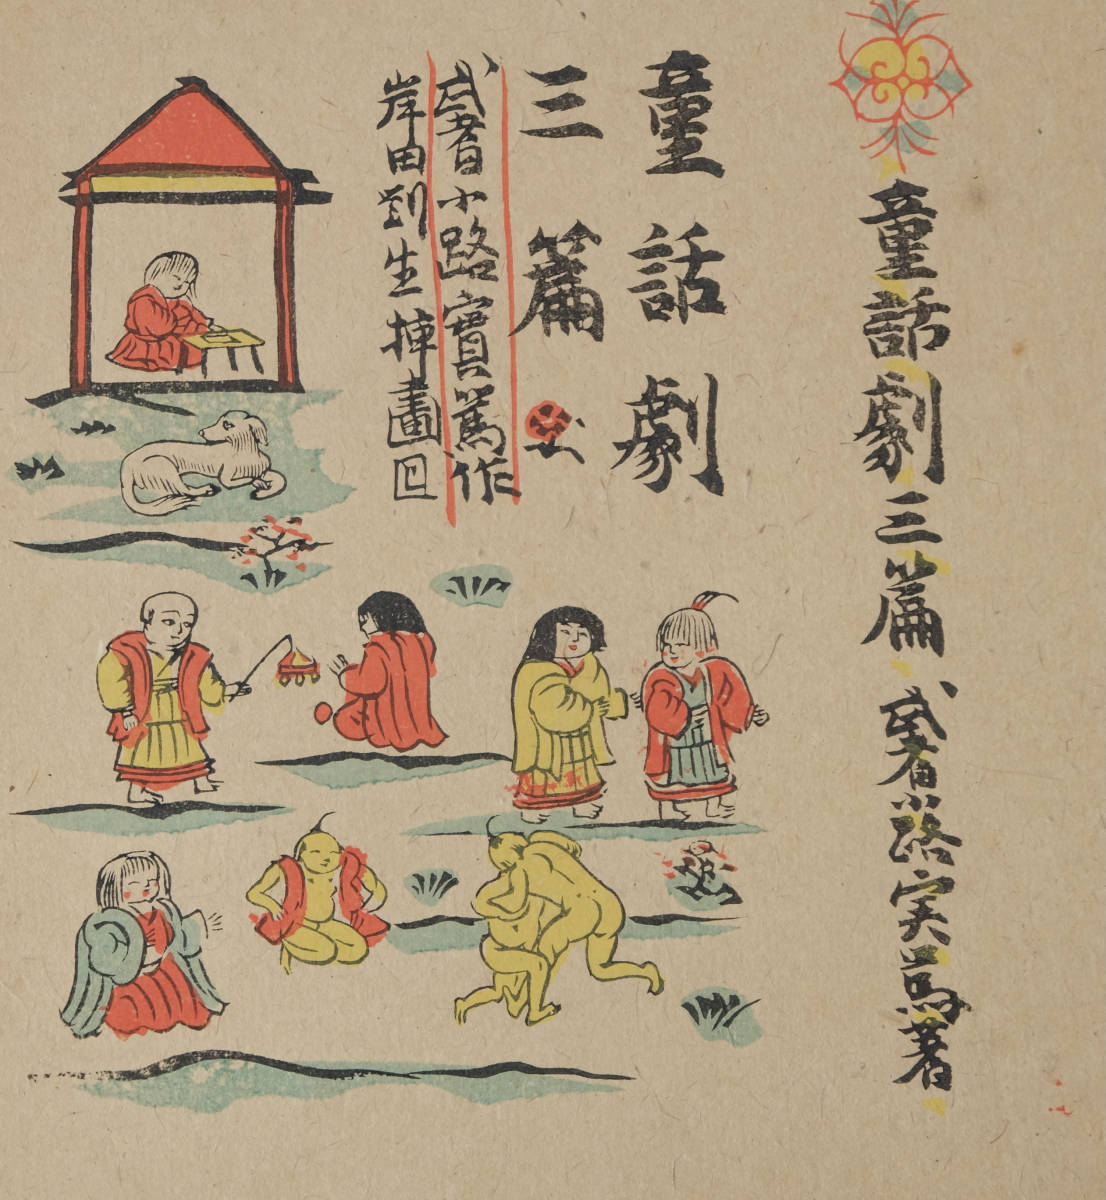 童話劇三篇
武者小路実篤著
童話劇
三篇
武者小路實篤作
岸田劉生挿畫